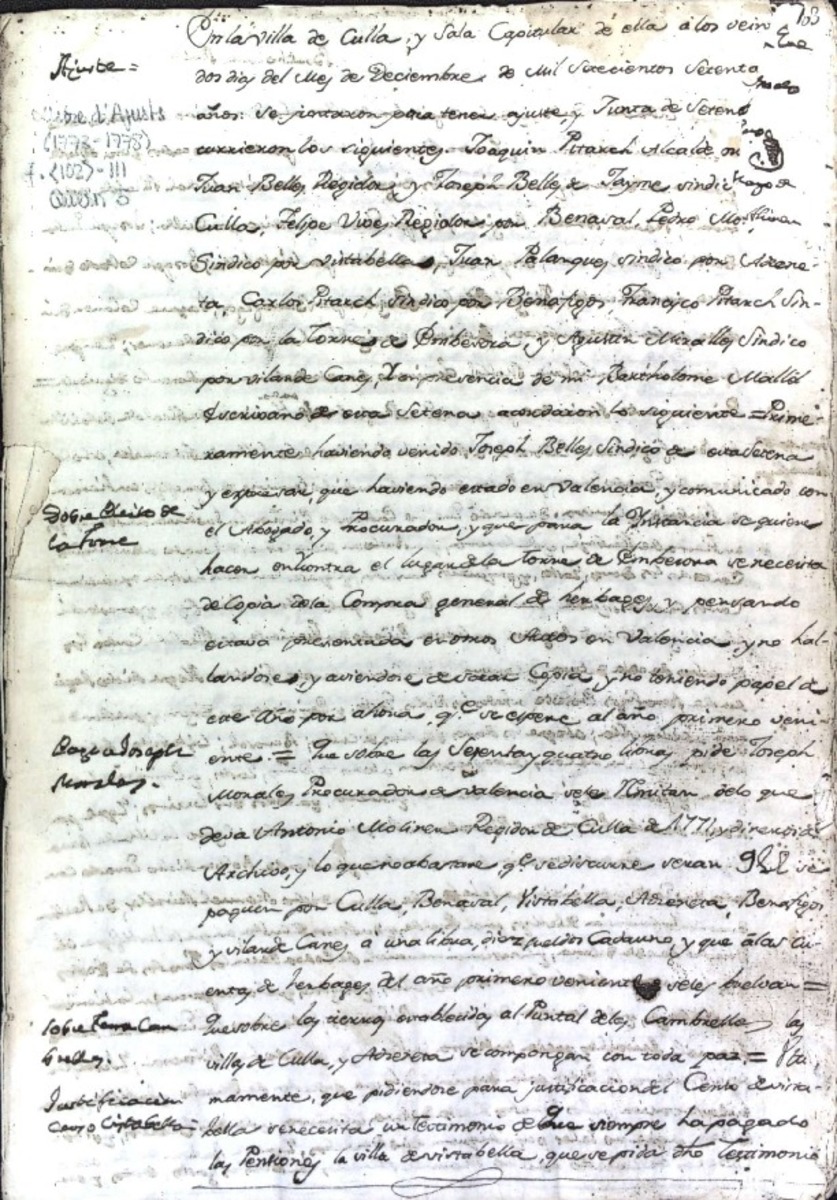 103
Ajuste =
Llibre d'Ajusts
(1773-1778)
f. (102)-111
En la villa de Culla, y Sala Capitular de ella a los vein
dos dias del Mes de Deciembre de Mil Setecientos Setenta
años: se juntaron para tener ajuste, y Junta de Setena
currieron los siguientes. Joaquin Pitarch Alcalde
Juan Belles Regidor, y Joseph Belles de Jayme sindic
Culla, Felipe Vives Regidor por Benasal, Pedro
Sindico por Vistabella, Juan Palanques sindico por Adzene-
ta, Carlos Pitarch Sindico por Benafigos, Francisco Pitarch Sin-
dico por la Torre de Embesora, y Agustin Miralles Sindico
por vilar de Canes, y en presencia de mi Bartholome Mallol
Escrivano de esta Setena acordaron lo siguiente = Prime-
ramente haviendo venido Joseph Belles Sindico de esta Setena
y expresar, que haviendo estado en Valencia, y comunicado con
Sobre Pleito de
la Torre
el Abogado, y Procurador, y que para la Instancia se quiere
hacer en contra el lugar de la Torre de Embesora se necesita
de Copia de la Compra general de herbages, y pensando
estava presentada en otros Autos en Valencia y no hal-
landose, y aviendose de sacar Copia, y no teniendo papel de
este Año por ahora, q.e se espere al año primero veni-
Paga a Joseph
Morales.
ente = Que sobre las Setenta y quatro libras pide Joseph
Morales Procurador de Valencia se le remitan de lo que
deva Antonio Moliner Regidor de Culla de 1771, y dinero de
Archivo, y lo que no abastare, q.e se discurre seran 9 LL se
paguen por Culla, Benasal, Vistabella, Adzeneta, Benafigos
y vilar de Canes a una libra, diez sueldos Cada uno, y que a las Cu-
entas de herbages del año primero veniente se les buelvan =
Sobre terra Cam
brelles.
Que sobre las tierras establecidas al Puntal de les Cambrelles las
villas de Culla, y Adzeneta se compongan con toda paz. = Ulti
Justificacion
Censo Vistabella =
mamente, que pidiendose para justificacion del Censo de vista-
bella se necesita un testimonio de que siempre ha pagado
las Pensiones la villa de vistabella, que se pida dho Testimonio